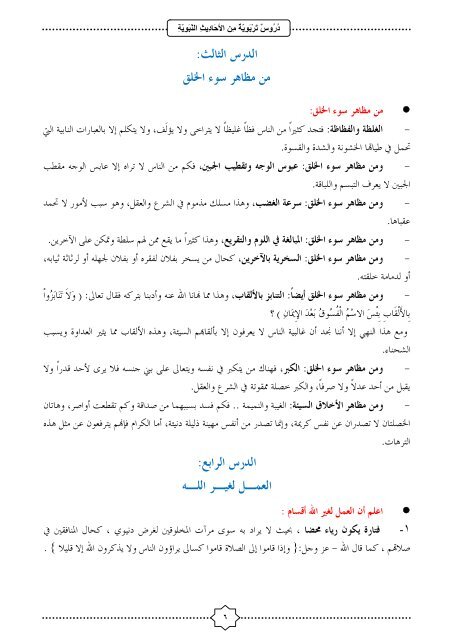 دُرُوسٌ تَرْبَويَّة من الأحاديث النَّبويَّة
الدرس الثالث:
من مظاهر سوء الخلق
● من مظاهر سوء الخلق:
- الغلظة والفظاظة: فتجد كثيراً من الناس فظاً غليظاً لا يتراخى ولا يؤلَف، ولا يتكلم إلا بالعبارات النابية التي
تحمل في طياتها الخشونة والشدة والقسوة.
- ومن مظاهر سوء الخلق: عبوس الوجه وتقطيب الجبين، فكم من الناس لا تراه إلا عابس الوجه مقطب
الجبين لا يعرف التبسم واللباقة.
- ومن مظاهر سوء الخلق: سرعة الغضب، وهذا مسلك مذموم في الشرع والعقل، وهو سبب لأمور لا تحمد
عقباها.
- ومن مظاهر سوء الخلق: المبالغة في اللوم والتقريع، وهذا كثيراً ما يقع ممن لهم سلطة وتمكن على الآخرين.
- ومن مظاهر سوء الخلق: السخرية بالآخرين، كحال من يسخر بفلان لفقره أو بفلان لجهله أو لرثاثة ثيابه،
أو لدمامة خلقته.
- ومن مظاهر سوء الخلق أيضاً: التنابز بالألقاب، وهذا مما نهانا الله عنه وأدبنا بتركه فقال تعالى: ( وَلَا تَنَابَزُواْ
بِالأَلْقَابِ بِئْسَ الاِسْمُ الْفُسُوقُ بَعْدَ الإِيمَانِ ) ؟
ومع هذا النهي إلا أننا نجد أن غالبية الناس لا يعرفون إلا بألقابهم السيئة، وهذه الألقاب مما يثير العداوة ويسبب
الشحناء.
- ومن مظاهر سوء الخلق: الكبر، فهناك من يتكبر في نفسه ويتعالى على بني جنسه فلا يرى لأحد قدراً ولا
يقبل من أحد عدلاً ولا صرفاً، والكبر خصلة ممقوتة في الشرع والعقل.
- ومن مظاهر الأخلاق السيئة: الغيبة والنميمة .. فكم فسد بسببهما من صداقة وكم تقطعت أواصر، وهاتان
الخصلتان لا تصدران عن نفس كريمة، وإنما تصدر من أنفس مهينة ذليلة دنيئة، أما الكرام فإنهم يترفعون عن مثل هذه
الترهات.
الدرس الرابع:
العمـــل لغيـــر اللـــه
● اعلم أن العمل لغير الله أقسام :
١- فتارة يكون رياء محضا ، بحيث لا يراد به سوى مرآت المخلوقين لغرض دنيوي ، كحال المنافقين في
صلاتهم ، كما قال الله – عز وجل:{ وإذا قاموا إلى الصلاة قاموا كسالى يراؤون الناس ولا يذكرون الله إلا قليلا } .
٦